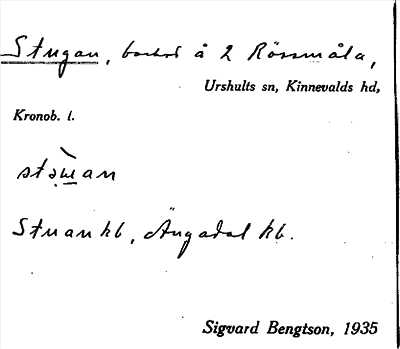 Stugan, bostad å 2 Rössmåla,
Urshults sn, Kinnevalds hd,
Kronob. l.
Stuan kb, Ängadal kb.
Sigvard Bengtson, 1935